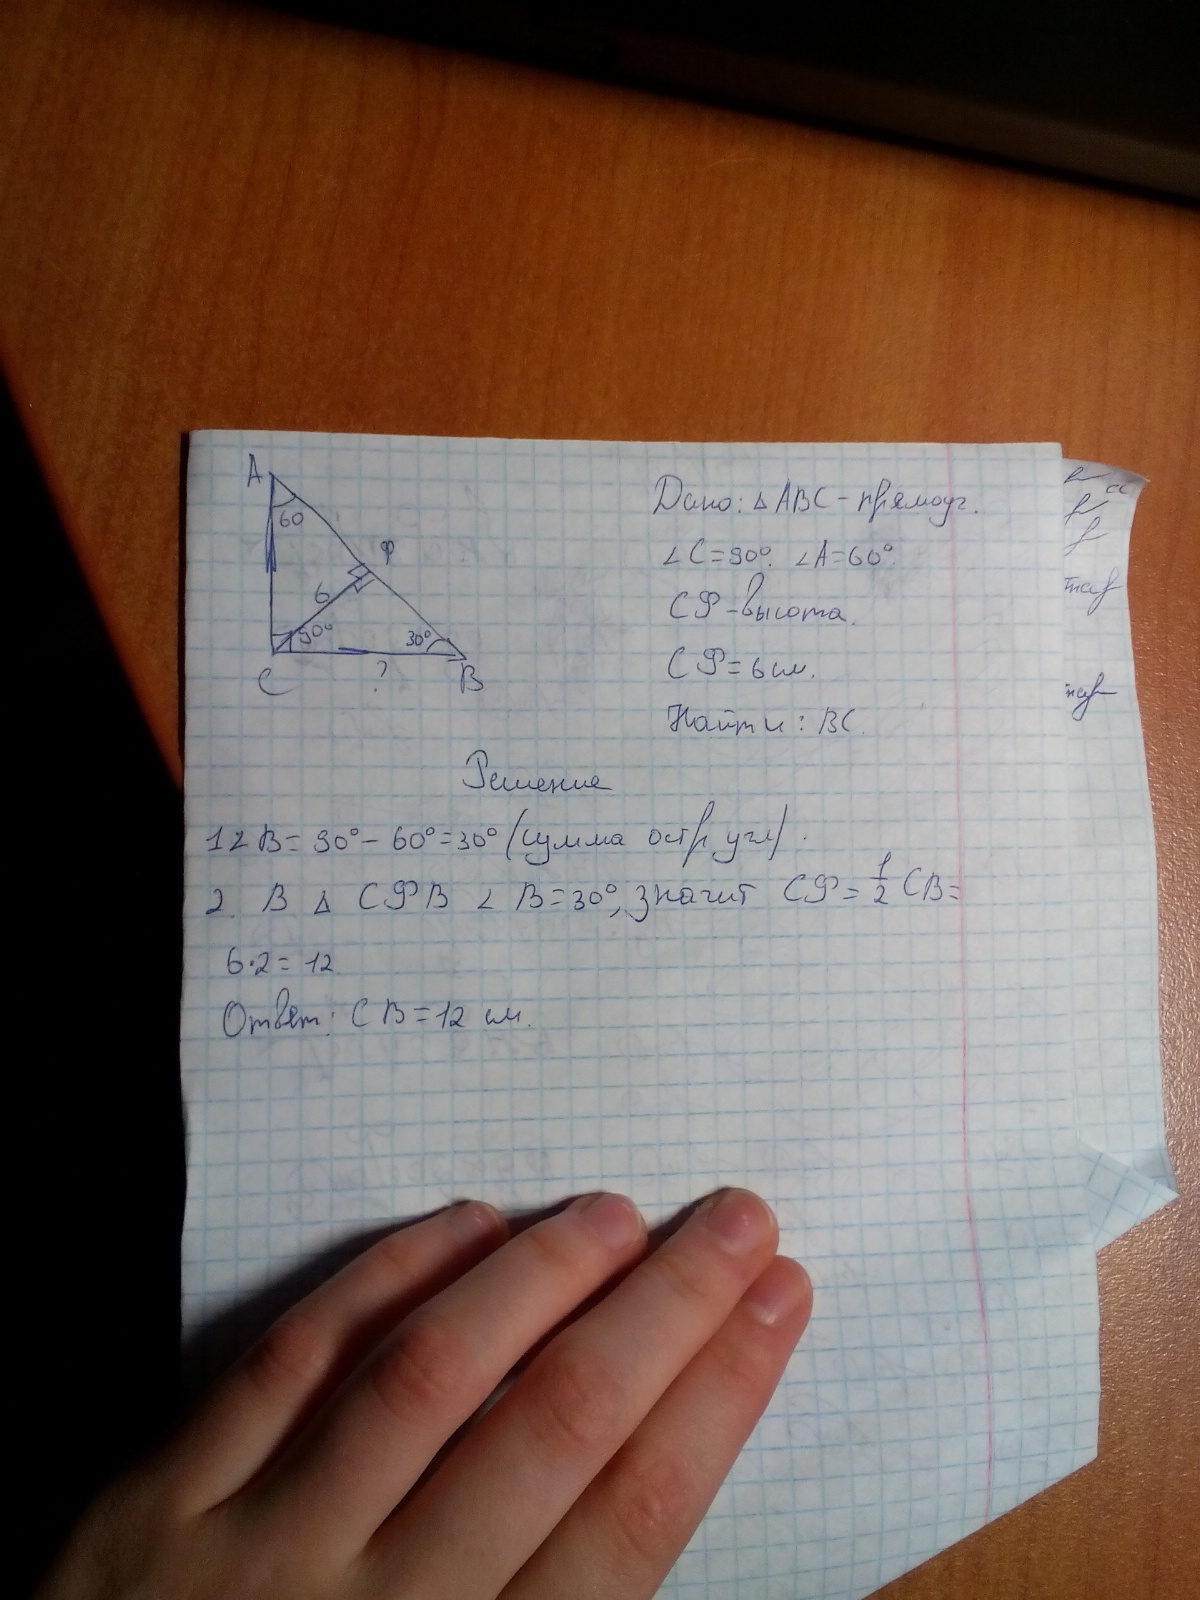 A
60
Ф
6
90°
30°
C
?
B
Дано: △ABC - прямоуг.
∠C=90°. ∠A=60°.
CФ-высота.
CФ=6см.
Найти: BC.
Решение
1∠B=90°-60°=30° (сумма остр угл).
2. В △ CФB ∠ B=30°, значит CФ=1/2 CB=
6·2=12
Ответ: CB=12 см.